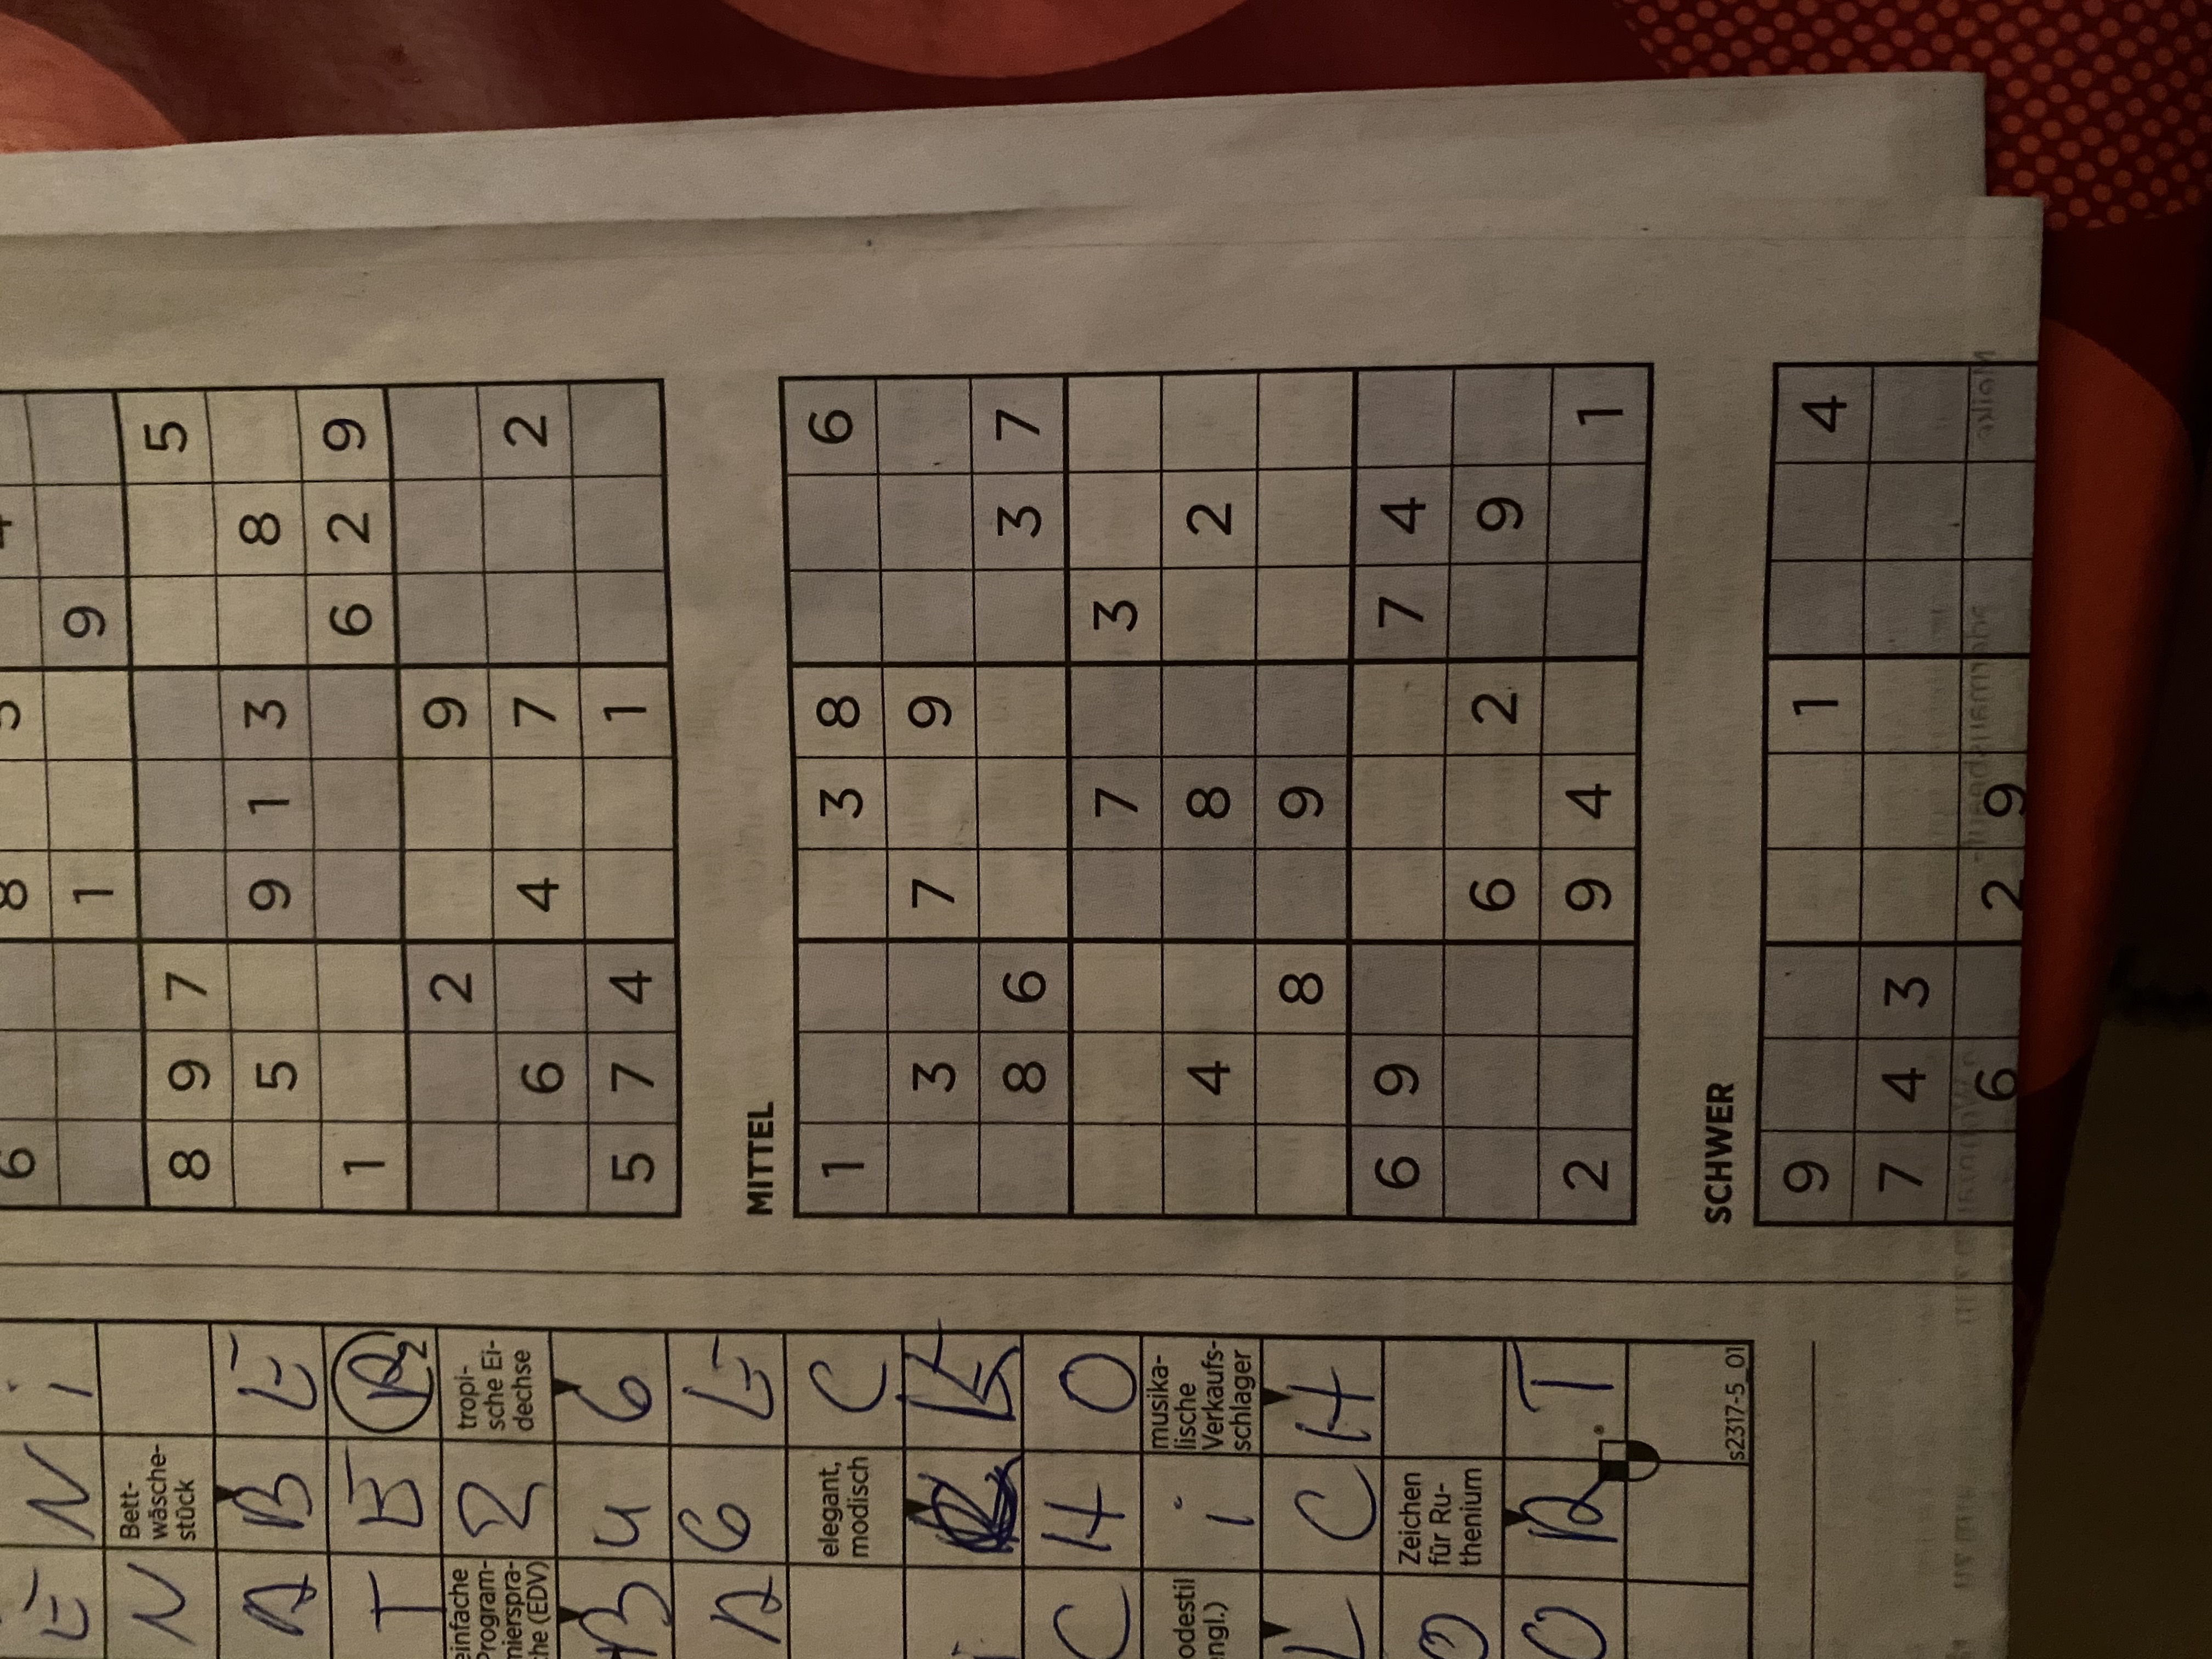 E N i
N Bett-
wäsche-
stück
A B E
T E R2
einfache
Program-
mierspra-
che (EDV)
2
tropi-
sche Ei-
dechse
B u G
A G E
elegant,
modisch
C
i E
C H O
odestil
engl.)
i
musika-
lische
Verkaufs-
schlager
L C H
O Zeichen
für Ru-
thenium
O R T
s2317-5_01
6 8 5 4
1 9
8 9 7 5
5 9 1 3 8
1 6 2 9
2 9
6 4 7 2
5 7 4 1
MITTEL
1 3 8 6
3 7 9
8 6 3 7
7 3
4 8 2
8 9
6 9 7 4
6 2 9
2 9 4 1
SCHWER
9 1 4
7 4 3
6 2 9